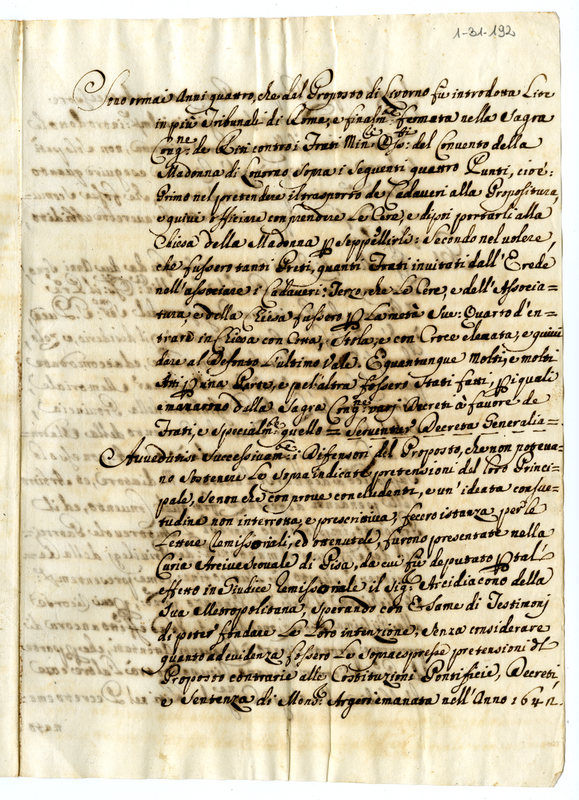 1-31-192
Sono ormai Anni quattro, che dal Proposto di Livorno fu introdotta Lite
in più Tribunali di Roma, e finalm:te fermata nella Sagra
Cong:ne de Riti contro i Frati Min:ri Oss:ti del Convento della
Madonna di Livorno Sopra i Seguenti quattro Punti, cioè:
Primo nel pretendere il trasporto de Cadaveri alla Propositura,
e quivi offitiare con prendere Le Cere, e dipoi portarli alla
Chiesa della Madonna p Seppellirli: Secondo nel volere,
che fussero tanti Preti, quanti Frati invitati dall'Erede
nell'associare i Cadaveri: Terzo, che Le Cere, e dell'Associa=
tura, e della Chiesa fussero p La metà Sue: Quarto d'en=
trare in Chiesa con Cotta, Stola, e con Croce elevata, e quivi
dare al Defonto L'ultimo Vale. E quantunque Molti, e molti
Atti p una Parte, e pel'altra fossero Stati fatti, p i quali
emanarono dalla Sagra Cong:ne varj Decreti à favore de
Frati, e Specialm:te quello = Serventur Decreta Generalia=.
Avvedutisi Successivam:te i Difensori del Proposto, che non poteva=
no Sostenere Le Sopra indicate pretensioni del loro Princi=
pale, Se non che con prove concludenti, e un'ideata consue=
tudine non interrotta, e prescrittiva, fecero istanza per le
Lettere Remissoriali; ed ottenutele, furono presentate nella
Curia Arcivescovale di Pisa, da cui fù deputato p tal'
effetto in Giudice Remissoriale il Sig:r Arcidiacono della
Sua Metropolitana, Sperando con Esame di Testimonj
di poter fondare La Loro intenzione, Senza considerare
quanto ad evidenza fossero Le Sopraespresse pretensioni del
Proposto contrarie alle Costituzioni Pontificie, Decreti,
e Sentenza di Mons:r Argeri emanata nell'Anno 1642.